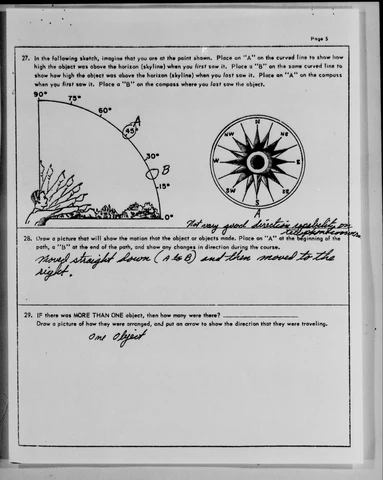 Page 5
27. In the following sketch, imagine that you are at the point shown. Place an "A" on the curved line to show how
high the object was above the horizon (skyline) when you first saw it. Place a "B" on the same curved line to
show how high the object was above the horizon (skyline) when you last saw it. Place an "A" on the compass
when you first saw it. Place a "B" on the compass where you last saw the object.
90°
75°
60°
A
45°
30°
B
15°
0°
N
NE
E
SE
S
SW
W
NW
A
Not very good direction capability on
telephone
28. Draw a picture that will show the motion that the object or objects made. Place an "A" at the beginning of the
path, a "B" at the end of the path, and show any changes in direction during the course.
Moved straight down (A to B) and then moved to the
right.
29. IF there was MORE THAN ONE object, then how many were there?
Draw a picture of how they were arranged, and put an arrow to show the direction that they were traveling.
One Object